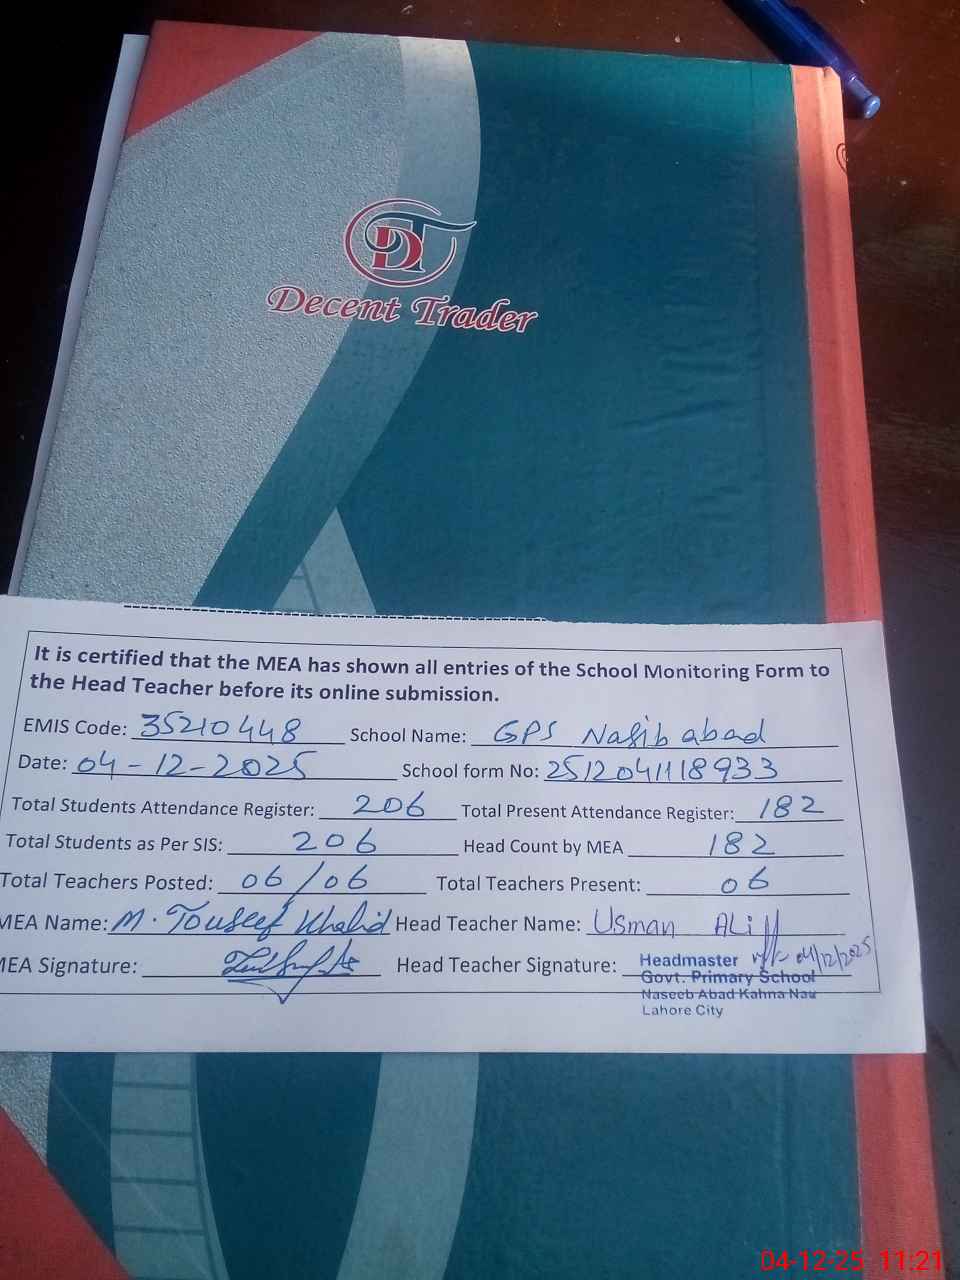 DT
Decent Trader
It is certified that the MEA has shown all entries of the School Monitoring Form to
the Head Teacher before its online submission.
EMIS Code: 35210448 School Name: GPS Nasib abad
Date: 04-12-2025 School form No: 2512041118933
Total Students Attendance Register: 206 Total Present Attendance Register: 182
Total Students as Per SIS: 206 Head Count by MEA 182
Total Teachers Posted: 06/06 Total Teachers Present: 06
MEA Name: M. Touseef Khalid Head Teacher Name: Usman ALi
MEA Signature: Head Teacher Signature: 04/12/2025
Headmaster
Govt. Primary School
Naseeb Abad Kahna Nau
Lahore City
04-12-25 11:21